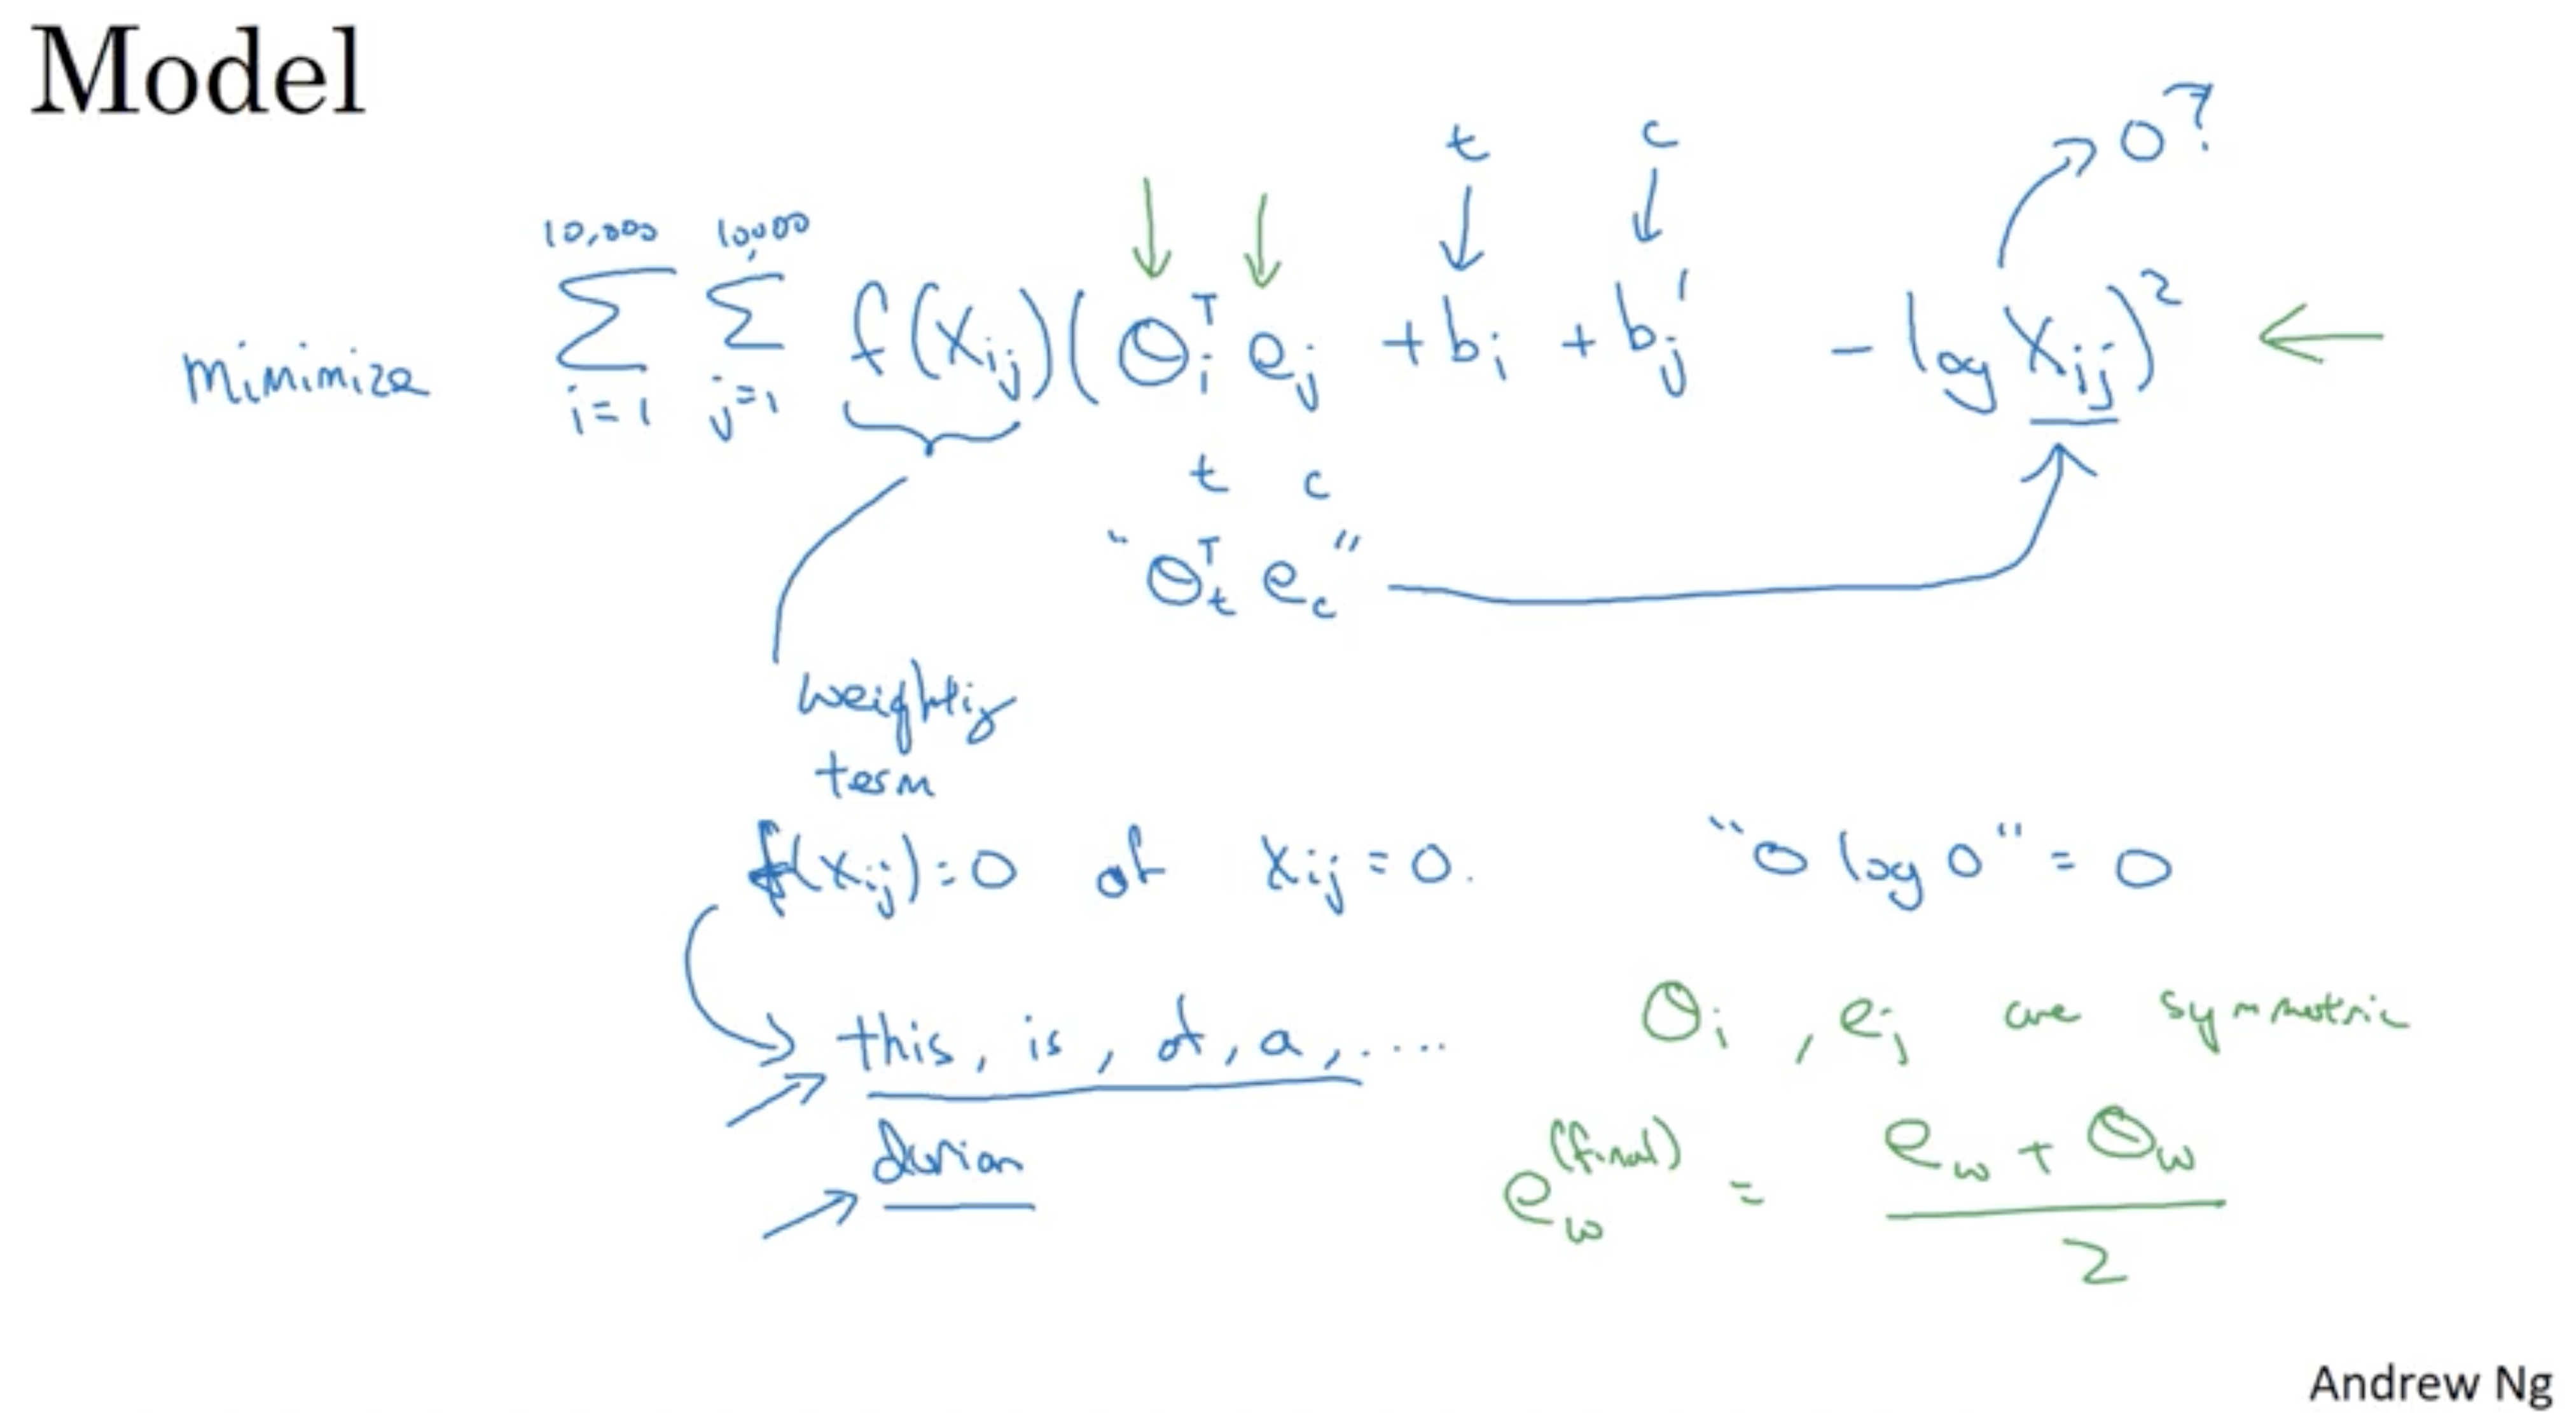 Model
t c 0?
minimize 10,000 Σ i=1 10,000 Σ j=1 f(Xij)(θiᵀ ej + bi + bj′ − log Xij)²
t c
"θtᵀ ec"
weighting
term
f(Xij)=0 if Xij=0. "0 log 0" = 0
this, is, of, a, ....
θi, ej are symmetric
durian
ew(final) = ew + θw
2
Andrew Ng